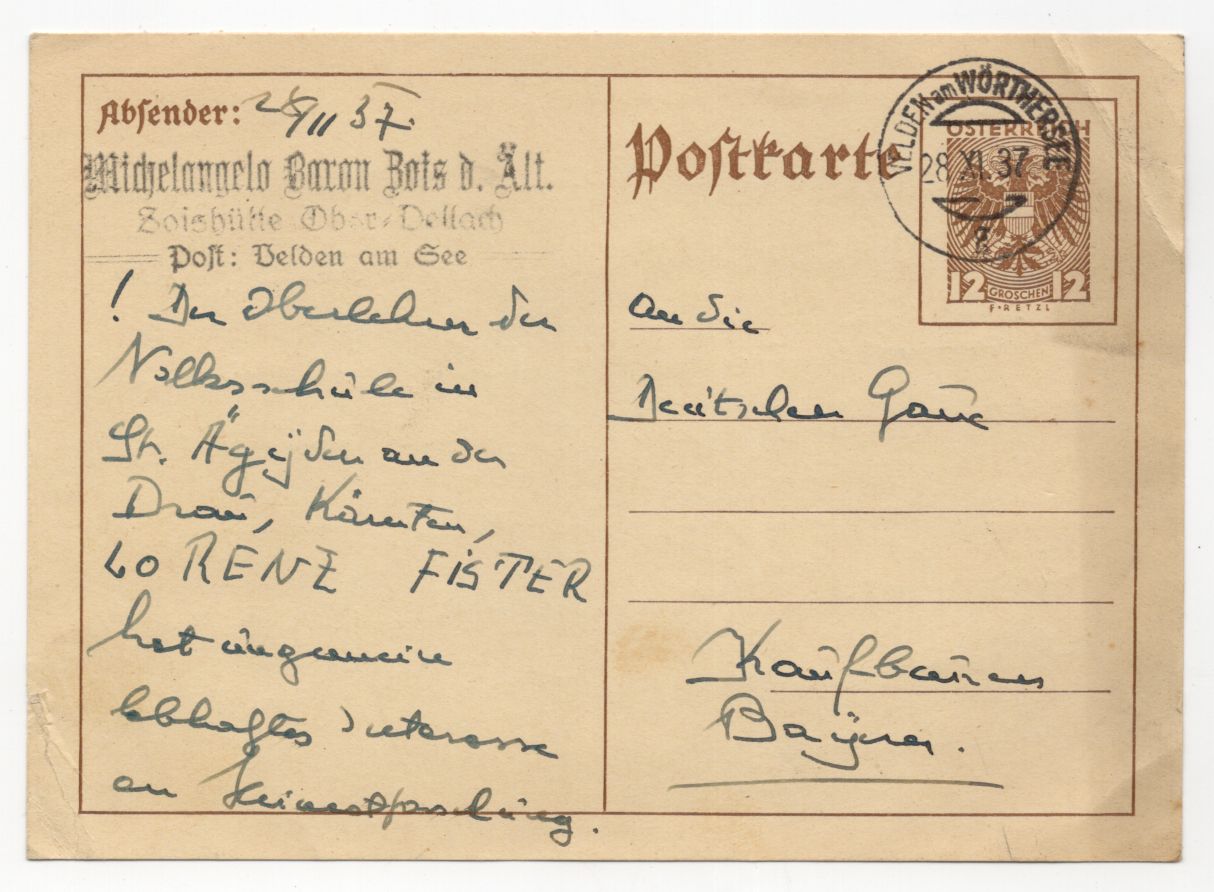 Absender: 28/11 37.
Michelangelo Baron Zois d. Ält.
Zoishütte Ober-Dellach
Post: Velden am See
! Der Oberlehrer der
Volksschule in
St. Ägÿden an der
Drau, Kärnten,
LORENZ FISTER
hat ungemein
lebhaftes Interesse
an Heimatforschung.
Postkarte
VELDEN am WÖRTHERSEE
28.XI.37
ÖSTERREICH
12 GROSCHEN 12
F·RETZL
An die
Deutschen Gaue
Kaufbeuren
Bayern.